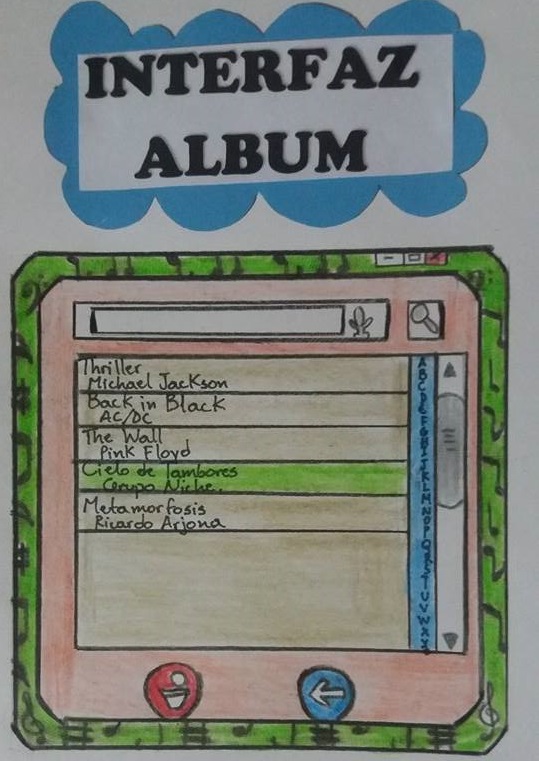 INTERFAZ
ALBUM
Thriller
Michael Jackson
Back in Black
AC/DC
The Wall
Pink Floyd
Cielo de Tambores
Grupo Niche.
Metamorfosis
Ricardo Arjona
A
B
C
D
E
F
G
H
I
J
K
L
M
N
O
P
Q
R
S
T
U
V
W
X
Y